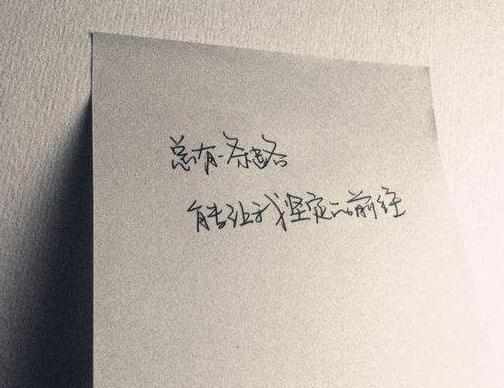 总有一条道路
能去让我坚定的前往